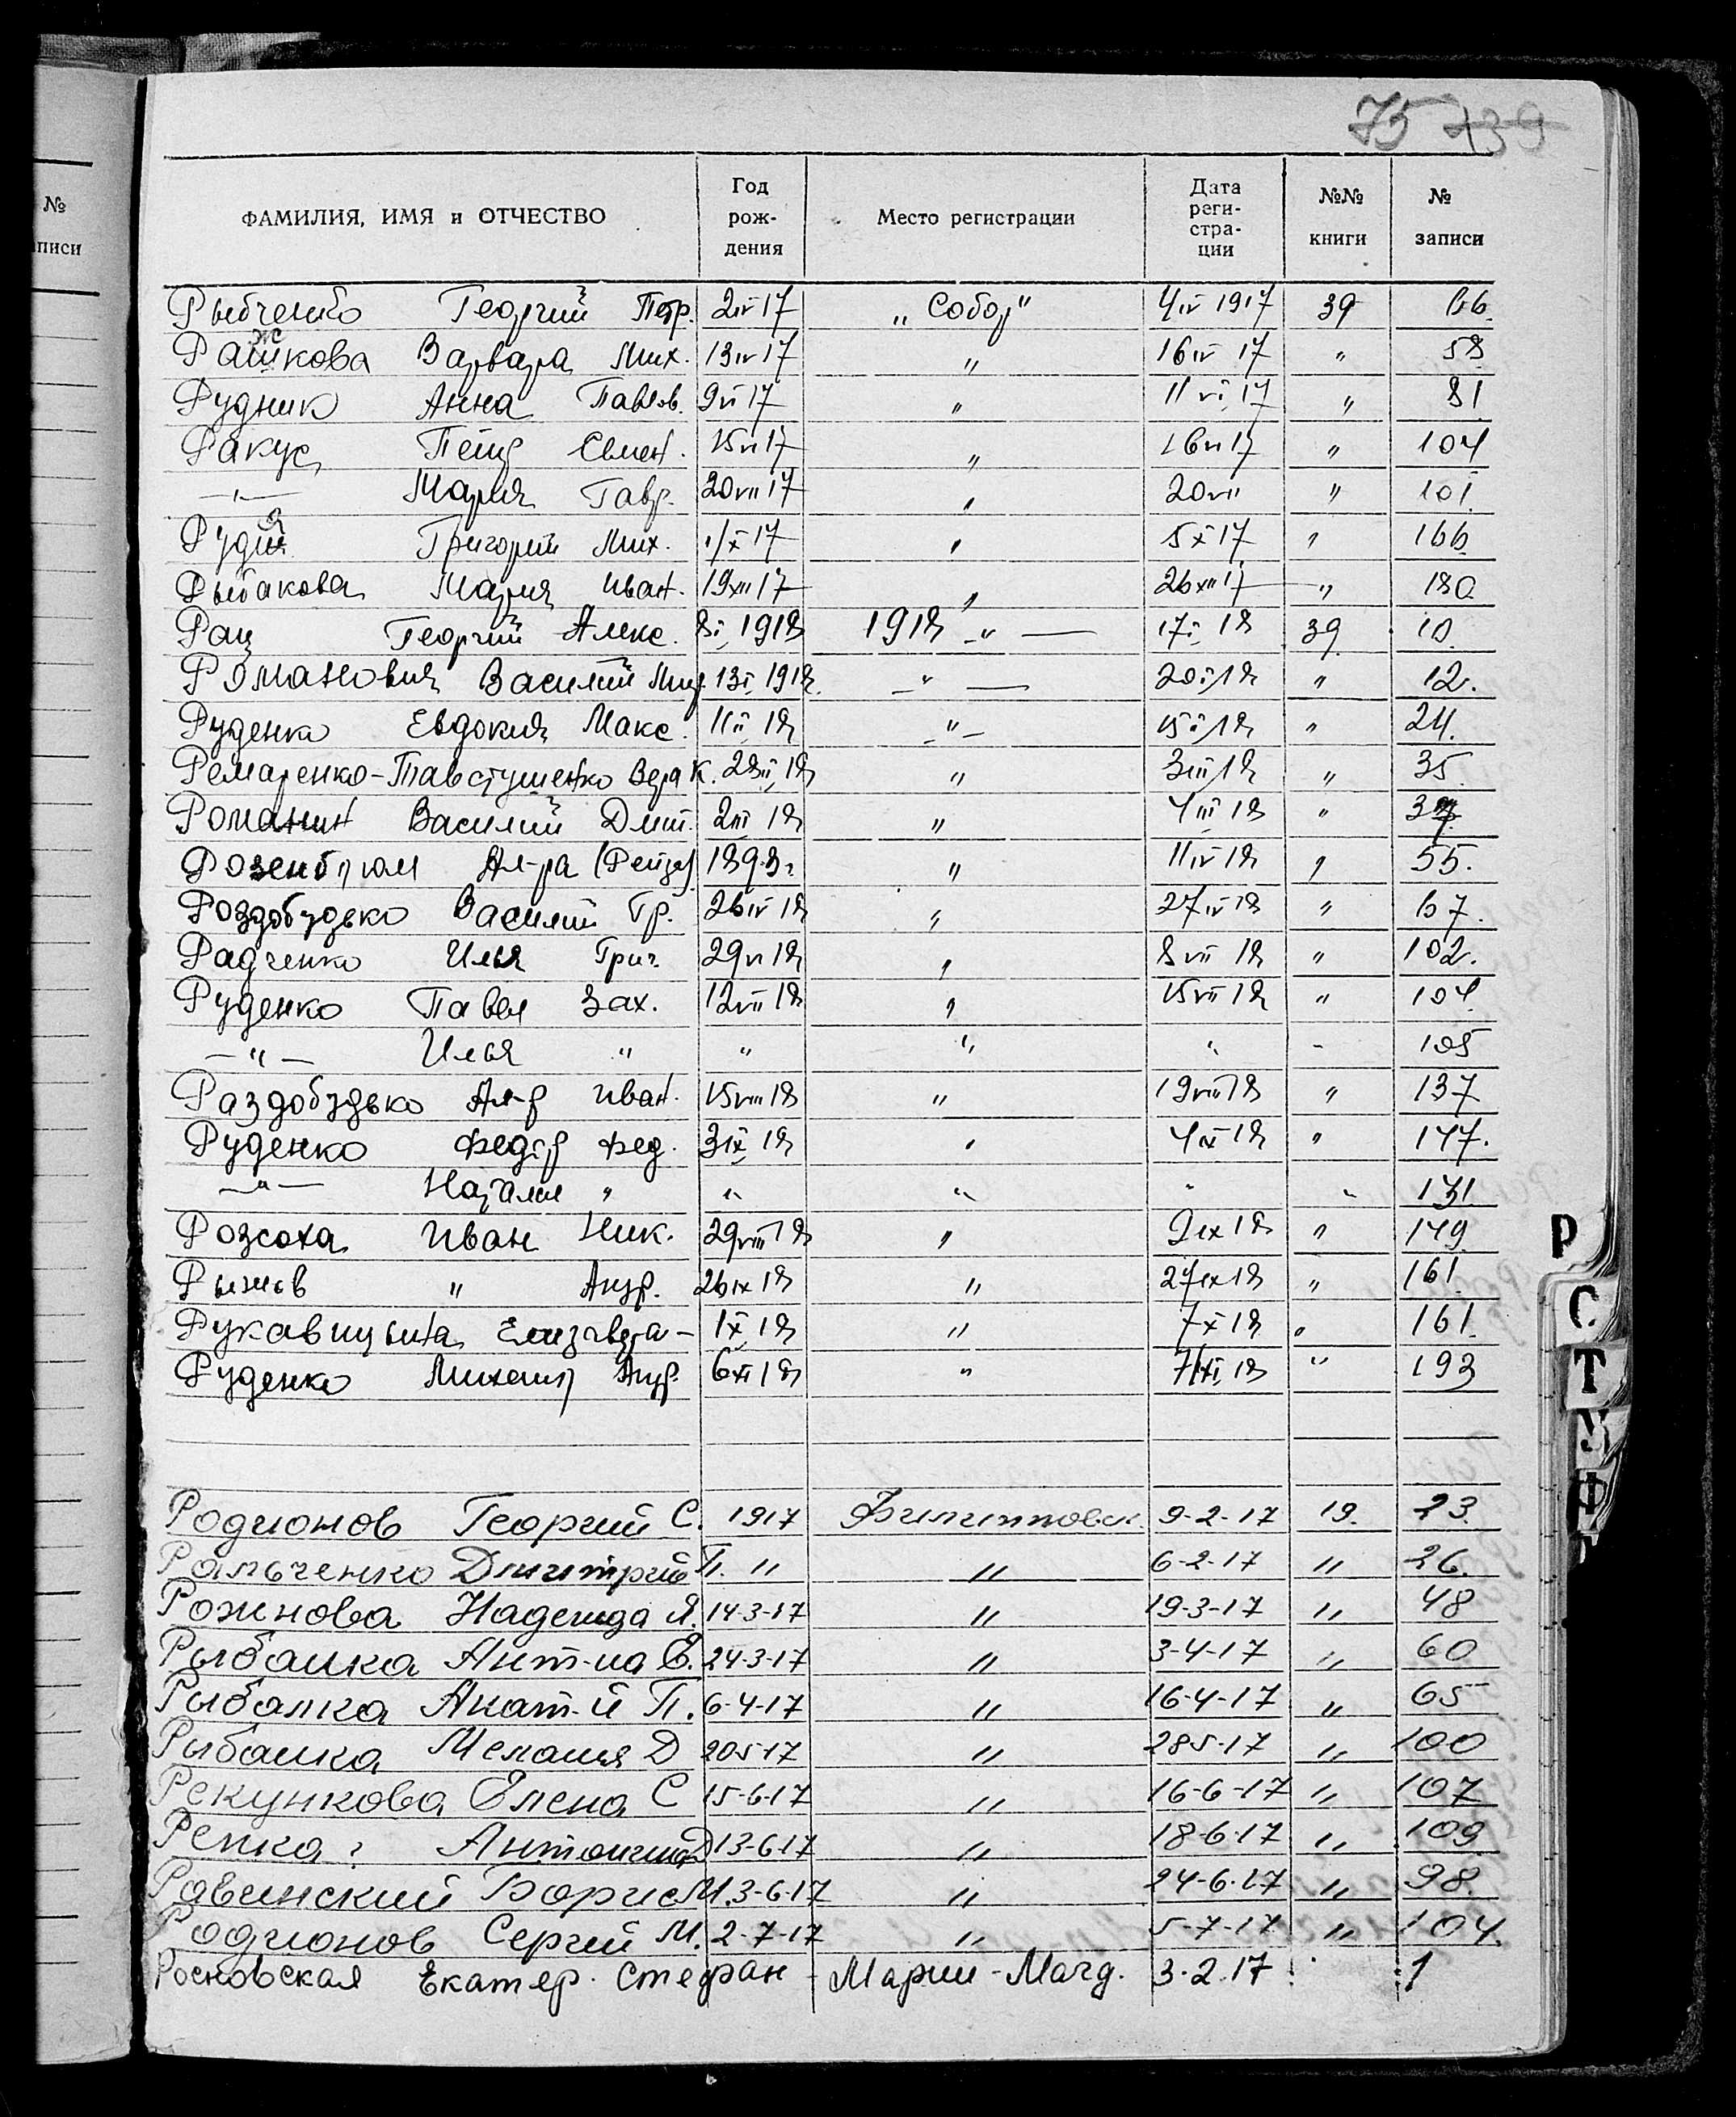 75 139
№
записи
ФАМИЛИЯ, ИМЯ и ОТЧЕСТВО Год рож-дения Место регистрации Дата реги-стра-ции №№ книги № записи
Рыбченко Георгий Петр. 2 IV 17 „Собор" 4 IV 1917 39 66.
Рашкова ж Варвара Мих. 13 IV 17 " 16 IV 17 " 58
Рудник Анна Павлов. 9 VI 17 " 11 VI 17 " 81
Ракус Петр Семен. 15 VI 17 " 16 VI 17 " 104
—"— Мария Гавр. 20 VII 17 " 20 VII " 101
Рудя Григорий Мих. 1/X 17 " 5 X 17 " 166
Рыбакова Мария Иван. 19 XII 17 " 26 XII 17 " 180
Рац Георгий Алекс. 8 I 1918 1918 —"— 17 I 18 39 10.
Романович Василий 13 I 1918 —"— 20 I 18 " 12.
Руденко Евдокия Макс. 11 II 18 —"— 15 II 18 " 24.
Ремаренко-Тавстушенко Вера К. 28 II 18 " 3 III 18 " 35
Романин Василий Дмит. 2 III 18 " 4 III 18 " 37
Розенблюм Ал-ра (Рейзя) 1893 г " 11 IV 18 " 55.
Роздобудько Василий Гр. 26 IV 18 " 27 IV 18 " 67.
Радченко Илья Григ. 29 VI 18 " 8 VII 18 " 102.
Руденко Павел Зах. 12 VII 18 " 15 VII 18 " 104
—"— Илья " " " " " 105
Раздобудько Ал-р Иван. 15 VIII 18 " 19 VIII 18 " 137
Руденко Федор Фед. 3 IX 18 " 4 IX 18 " 147.
—"— Наталья " " " " " 131
Розсоха Иван Ник. 29 VIII 18 " 9 IX 18 " 149
Рыжов " Андр. 26 IX 18 " 27 IX 18 " 161
Рукавицына Елизавета — 1 X 18 " 7 X 18 " 161.
Руденко Михаил Андр. 6 XI 18 " 7 XI 18 " 193
Родионов Георгий С. 1917 Филипповск. 9-2-17 19. 23.
Ральченко Дмитрий П. " " 6-2-17 " 26.
Рожнова Надежда Я. 14-3-17 " 19-3-17 " 48
Рыбалка Ант-на Е. 24-3-17 " 3-4-17 " 60
Рыбалка Акат-й П. 6-4-17 " 16-4-17 " 65
Рыбалка Мелания Д 20-5-17 " 28-5-17 " 100
Рекункова Елена С 15-6-17 " 16-6-17 " 107
Репка ? Антонина Д 13-6-17 " 18-6-17 " 109
Равинский Борис М. 3-6-17 " 24-6-17 " 98.
Родионов Сергей М. 2-7-17 " 5-7-17 " 104.
Росновская Екатер. Стефан - Марии-Магд. 3.2.17. 1
Р
С
Т
У
Ф